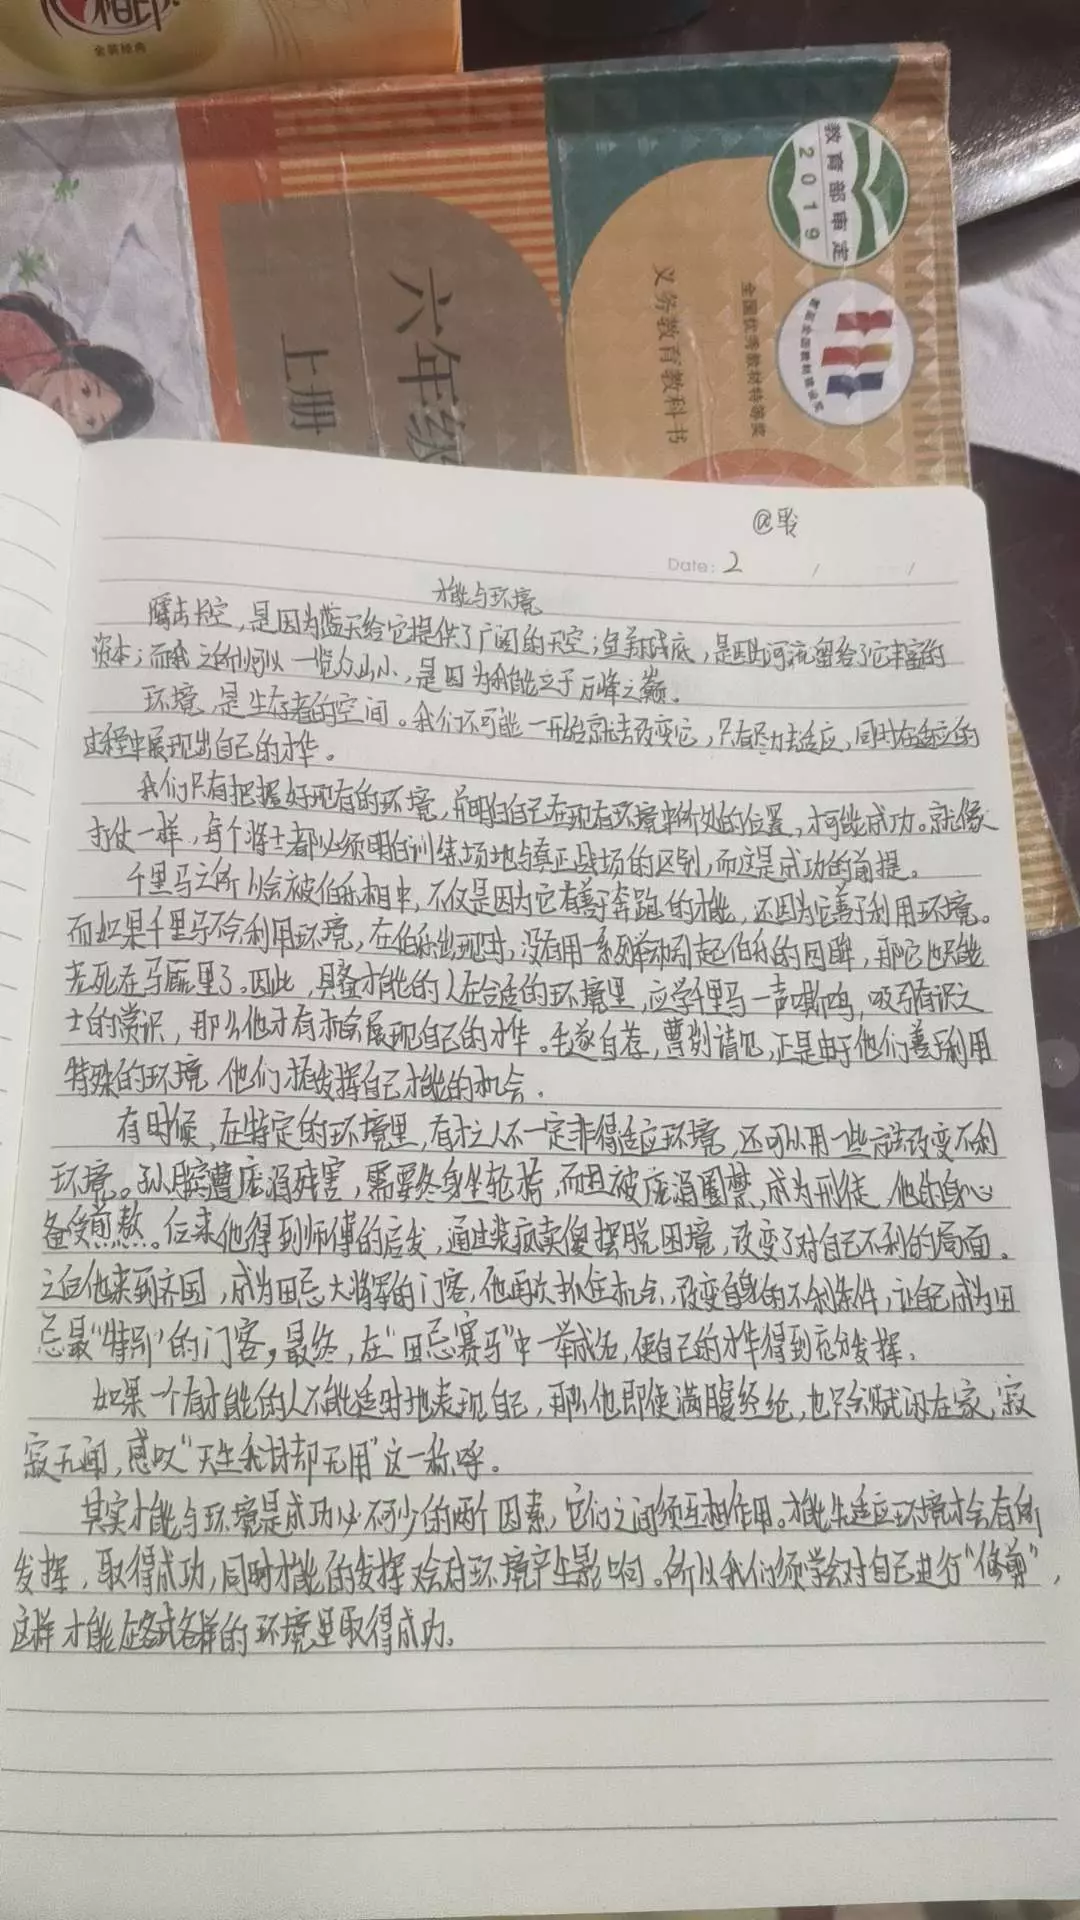 心相印
金装经典
教育部审定
2019
首届全国教材建设奖
全国优秀教材特等奖
义务教育教科书
六年级
上册
@
Date: 2
才能与环境
鹰击长空,是因为蓝天给它提供了广阔的天空;鱼翔浅底,是因为河流留给了它丰富的
资本;而我之所以可以一览众山小,是因为我能立于万峰之巅.
环境,是生存者的空间。我们不可能一开始就去改变它,只有尽力去适应,同时在适应的
过程中展现出自己的才华。
我们只有把握好现有的环境,并明白自己在现有环境中所处的位置,才可能成功。就像
打仗一样,每个将士都必须明白训练场地与真正战场的区别,而这是成功的前提。
千里马之所以会被伯乐相中,不仅是因为它有善于奔跑的才能,还因为它善于利用环境。
而如果千里马不会利用环境,在伯乐出现时,没有用一系列举动引起伯乐的回眸,那它也只能
老死在马厩里了。因此,具备才能的人在合适的环境里,应学千里马一声嘶鸣,吸引有识之
士的赏识,那么他才有机会展现自己的才华。毛遂自荐,曹刿请见,正是由于他们善于利用
特殊的环境,他们才有发挥自己才能的机会.
有时候,在特定的环境里,有才之人不一定非得适应环境,还可以用一些方法改变不利
环境。孙膑遭庞涓残害,需要终身坐轮椅,而且被庞涓圈禁,成为刑徒,他的身心
备受煎熬。后来他得到师傅的启发,通过装疯卖傻摆脱困境,改变了对自己不利的局面。
之后他来到齐国,成为田忌大将军的门客,他再次抓住机会,改变自身的不利条件,让自己成为田
忌最“特别”的门客,最终,在“田忌赛马”中一举成名,使自己的才华得到充分发挥.
如果一个有才能的人不能适时地表现自己,那么他即使满腹经纶,也只会赋闲在家,寂
寂无闻,感叹“天生我材却无用”这一称呼。
其实才能与环境是成功必不可少的两个因素,它们之间须互相作用。才能先适应环境才会有所
发挥,取得成功,同时才能的发挥又会对环境产生影响。所以我们须学会对自己进行“修剪”,
这样才能在各式各样的环境里取得成功。